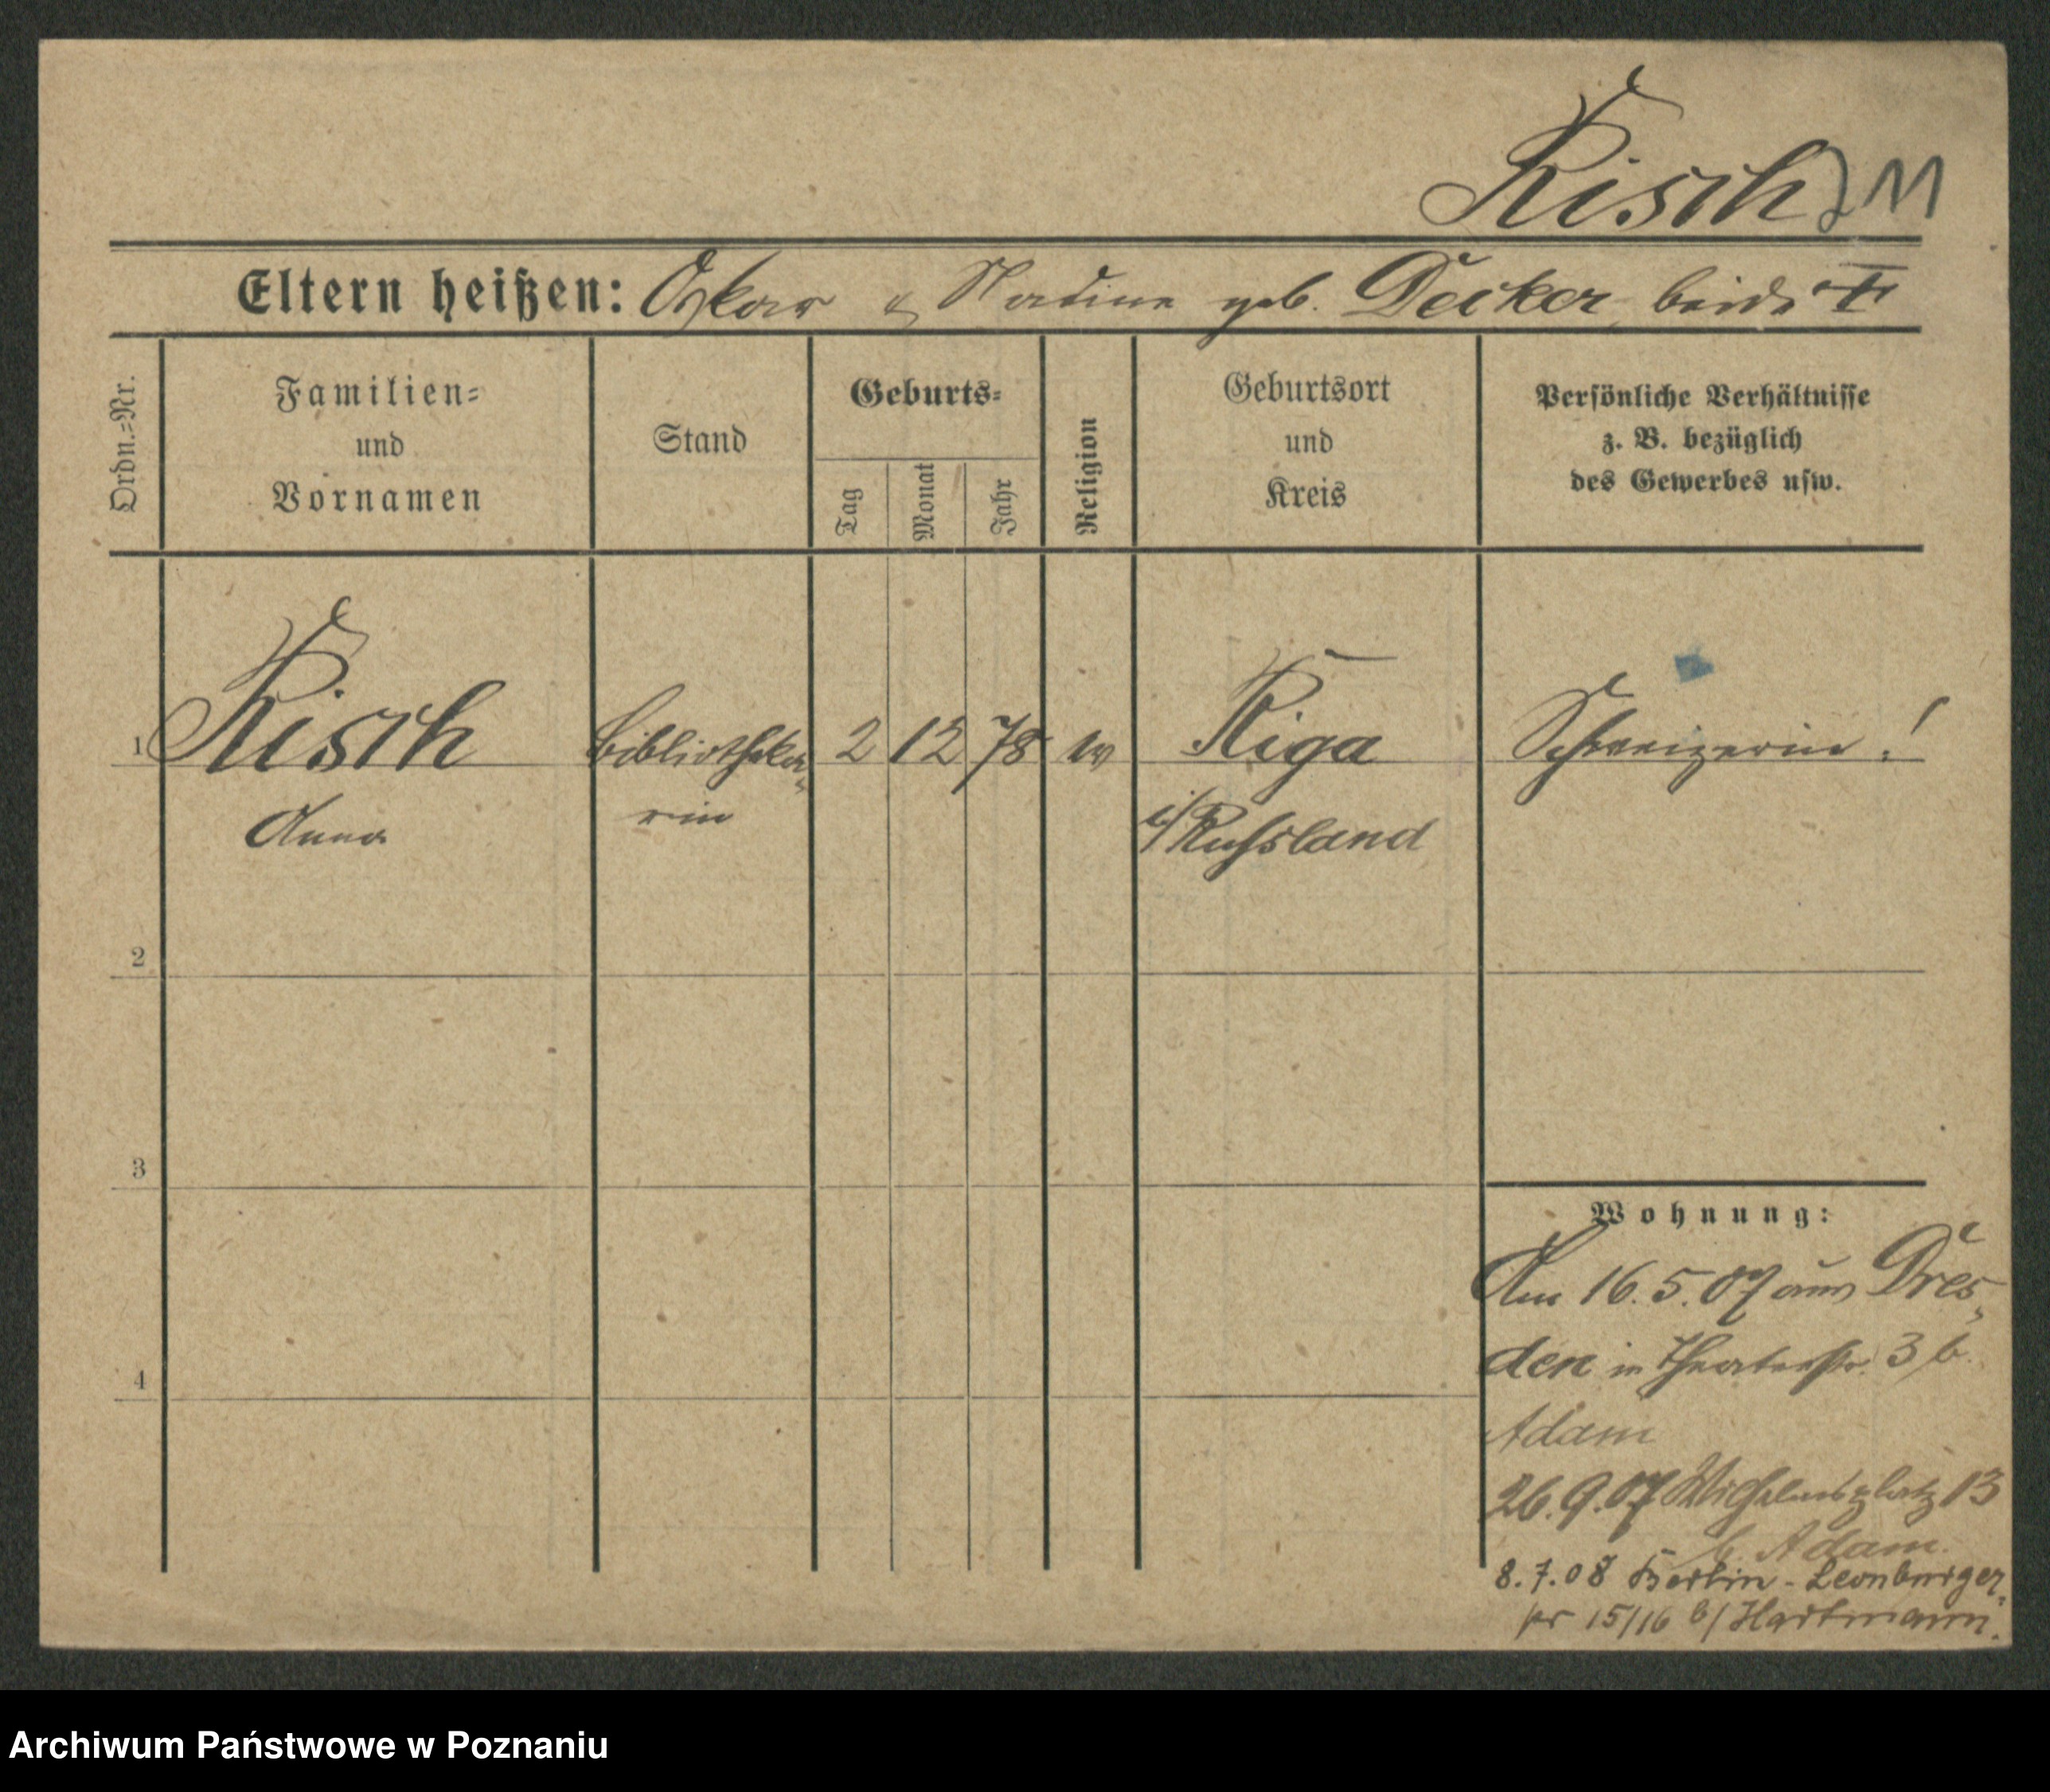 Risch
Eltern heißen: Oskar u Nadine geb. Decker, beide †
Ordn.=Nr.
Familien=
und
Vornamen
Stand
Geburts=
Tag
Monat
Jahr
Religion
Geburtsort
und
Kreis
Persönliche Verhältnisse
z. B. bezüglich
des Gewerbes usw.
1 Risch Bibliotheka= 2 12 78 Riga Schweizerin!
Anna rin i/Russland
2
3
Wohnung:
Am 16.5.07 aus Dres=
den in Theaterstr. 3 b.
4
Adam
26.9.07 Wilhelmsplatz 13
b. Adam.
8.7.08 Berlin -
str 15/16 b/ Hartmann.
Archiwum Państwowe w Poznaniu